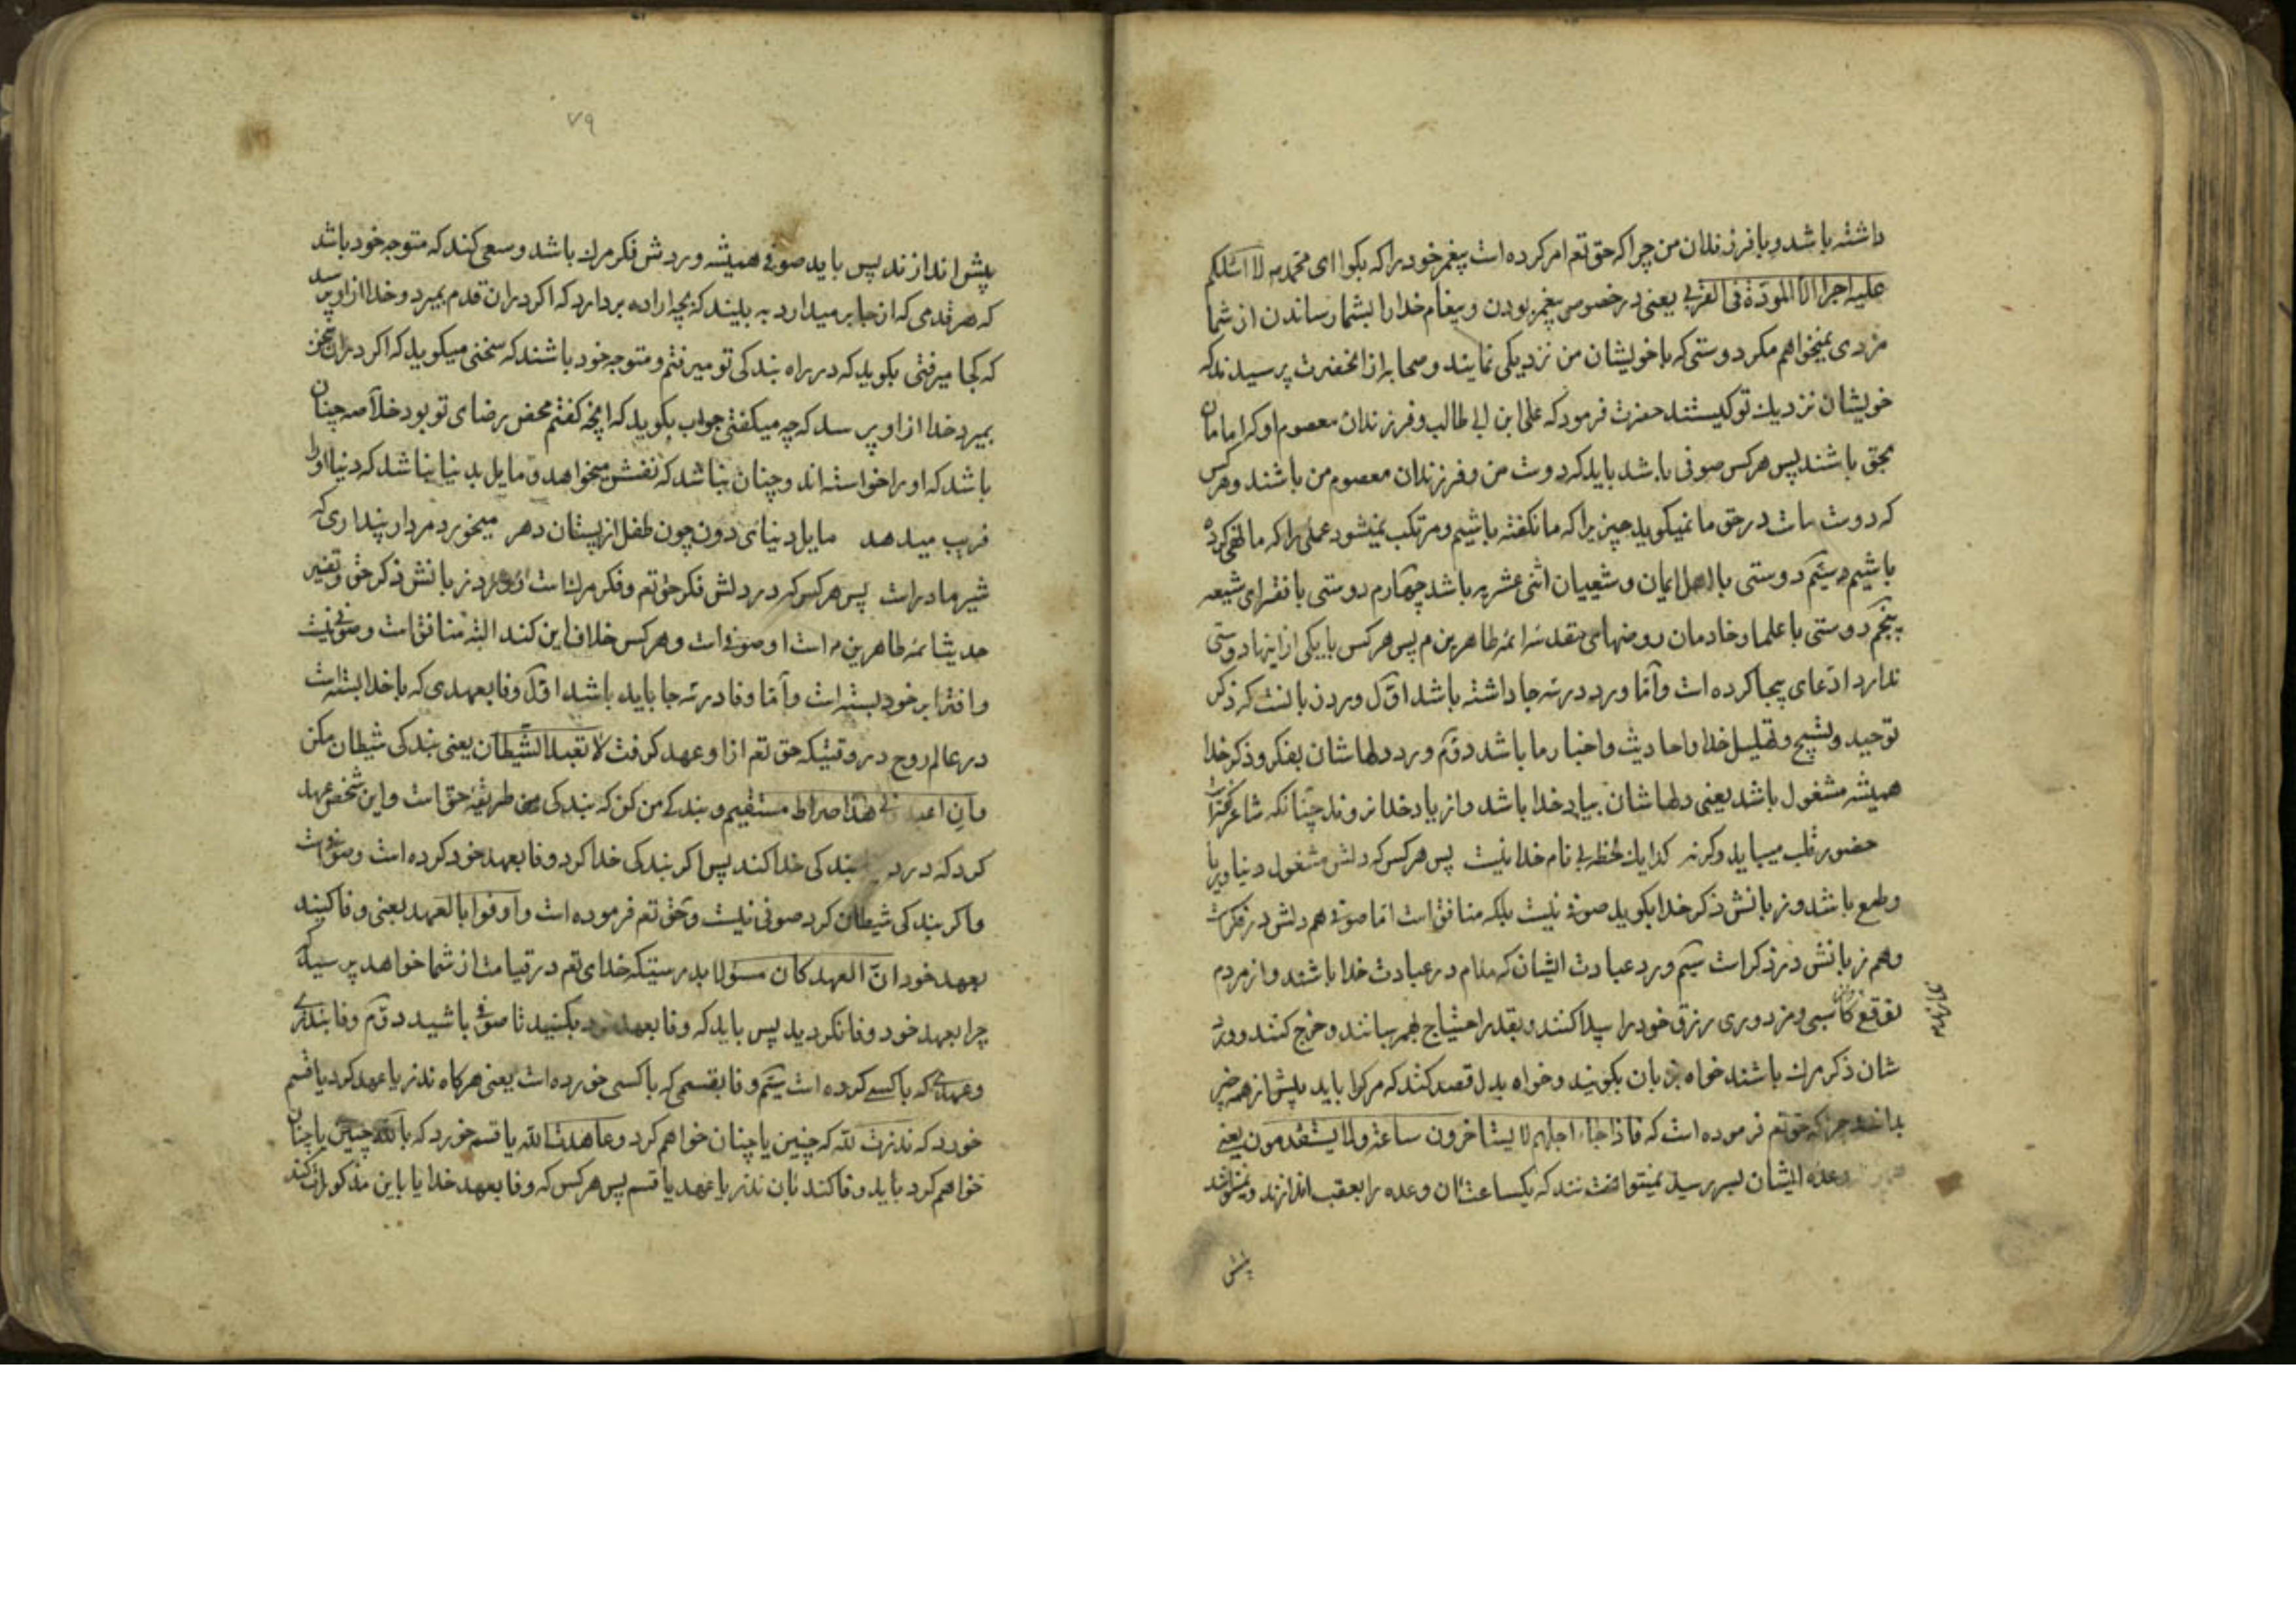 داشته باشد و با فرزندان من چرا که حق تعم امر کرده است پیغمبر خود را که بکو ای محمد لا اسئلکم
علیه اجرا الا المودة فی القربی یعنی در خصوص پیغمبر بودن و پیغام خدا را بشما رساندن از شما
مزدی نمیخواهم مکر دوستی که با خویشان من نزدیکی نمایند و صحابه از انحضرت پرسیدند که
خویشان نزدیك تو کیستند حضرت فرمود که علی ابن ابی طالب و فرزندان معصوم او که امامان
بحق باشند پس هر کس صوفی باشد باید که دوست من و فرزندان معصوم من باشند و هر کس
که دوست ماست در حق ما نمیکوید چیزیرا که ما نکفته باشیم و مرتکب نمیشود عملی را که ما نهی کرده
باشیم سیّم دوستی با اهل ایمان و شیعیان اثنی عشریه باشد چهارم دوستی با فقرای شیعه
پنجم دوستی با علما و خادمان روضهای مقدسه ائمه طاهرین م پس هر کس با یکی از اینها دوستی
ندارد ادّعای بیجا کرده است و امّا ورد در سه جا داشته باشد اوّل ورد زبانست که ذکر
توحید و تسبیح و تهلیل خدا و احادیث و اخبار ما باشد دوّم ورد دلهاشان بفکر و ذکر خدا
همیشه مشغول باشد یعنی دلهاشان بیاد خدا باشد و از یاد خدا نروند چنانکه شاعر گفته است
حضور قلب میباید وکرنه کدا یك لحظه بی نام خدا نیست پس هر کس که دلش مشغول دنیا و ریا
و طمع باشد و زبانش ذکر خدا بکوید صوفی نیست بلکه منافق است امّا صوفی هم دلش در فکر است
و هم زبانش در ذکر است سیّم ورد عبادت ایشان که مدام در عبادت خدا باشند و از مردم
توقع کاسبی و مزدوری رزق خود را پیدا کنند و بقدر احتیاج بهم رسانند و خرج کنند و ورد
شان ذکر مرك باشند خواه بزبان بکویند و خواه بدل قصد کنند که مرك را باید پیش از همه چیز
بدانند چرا که حق تعم فرموده است که فاذا جاء اجلهم لا یستاخرون ساعة ولا یستقدمون یعنی
وعده ایشان بسر رسید نمیتوانند که یکساعت ان وعده را بعقب اندازند و
پیش
۷۹
پیش اندازند پس باید صوفی همیشه وردش فکر مرك باشد و سعی کند که متوجه خود باشد
که هر قدمی که از جا بر میدارد به بیند که بچه اراده بردارد که اکر در ان قدم بمیرد و خدا از او پرسد
که کجا میرفتی بکوید که در راه بندکی تو میرفتم و متوجه خود باشند که سخنی میکوید که اکر در ان سخن
بمیرد خدا از او پرسد که چه میکفتی جواب بکوید که انچه کفتم محض رضای تو بود خلاصه چنان
باشد که او را خواسته اند و چنان نباشد که نفسش میخواهد و مایل بدنیا نباشد که دنیا او را
فریب میدهد مایل دنیای دون چون طفل از پستان دهر میخورد مردار پنداری که
شیر مادر است پس هر کس که در دلش فکر حق تعم و فکر مرك است و در زبانش ذکر حق و تفسیر
حدیث ائمه طاهرین م است او صوفی است و هر کس خلاف این کند البته منافق است و صوفی نیست
و افترا بر خود بسته است و امّا وفا در سه جا باید باشد اوّل وفا بعهدی که با خدا بسته است
در عالم روح در وقتیکه حق تعم از او عهد کرفت لا تعبد الشیطان یعنی بندکی شیطان مکن
و ان اعبدونی هذا صراط مستقیم و بندکی من کن که بندکی من طریقه حق است و این شخص عهد
کرد که در بندکی خدا کند پس اکر بندکی خدا کرد وفا بعهد خود کرده است و صوفی است
و اکر بندکی شیطان کرد صوفی نیست و حق تعم فرموده است و اوفوا بالعهد یعنی وفا کنید
بعهد خود انّ العهد کان مسؤلا بدرستیکه خدای تعم در قیامت از شما خواهد پرسید که
چرا بعهد خود وفا نکردید پس باید که وفا بعهد خود بکنید تا صوفی باشید دوّم وفا بنذری
و عهدی که با کسی کرده است سیّم وفا بقسمی که با کسی خورده است یعنی هرکاه نذر یا عهد کرد یا قسم
خورد که نذرت لله که چنین یا چنان خواهم کرد و عاهدت الله یا قسم خورد که بالله چنین یا چنان
خواهم کرد باید وفا کند بان نذر یا عهد یا قسم پس هر کس که وفا بعهد خدا یا باین مذکورات کند